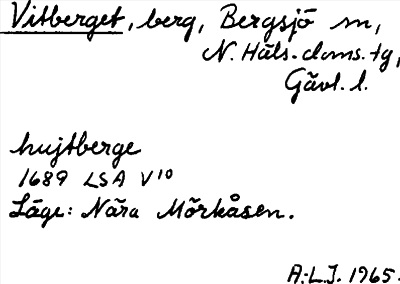 Vitberget, berg, Bergsjö sn,
N. Häls. doms. tg,
Gävl. l.
hujtberge
1689 LSA V10
Läge: Nära Mörkåsen.
A.-L.J. 1965.